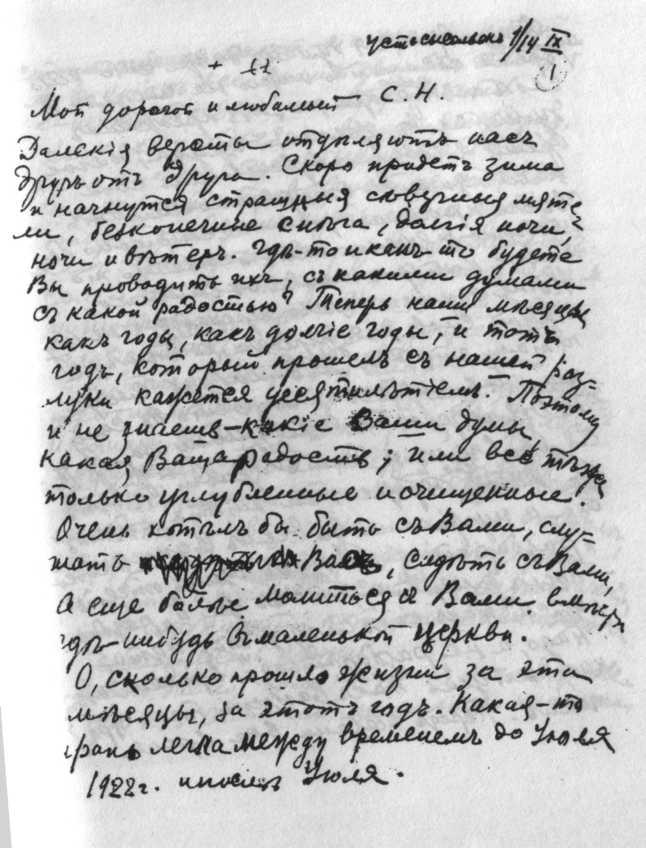 Усть-Сысольск 1/14 IX
1
Мой дорогой и любимый С. Н.
Далекія версты отдѣляютъ насъ
другъ отъ друга. Скоро придетъ зима
и начнутся страшныя сѣверныя мяте-
ли, безконечные снѣга, долгія ночи,
ночи и вѣтеръ. Гдѣ-то и какъ-то будете
Вы проводить ихъ, съ какими думами
съ какой радостью? Теперь наши мѣсяцы
какъ годы, какъ долгіе годы, и тотъ
годъ, который прошелъ съ нашей раз-
луки кажется десятилѣтіемъ. Поэтому
и не знаешь-какіе Ваши думы,
какая Ваша радость; или всѣ тѣ же
только углубленные и очищенные?
Очень хотѣлъ бы быть съ Вами, слу-
шать Васъ, сидѣть съ Вами,
А еще болѣе молиться с Вами вмѣстѣ
гдѣ-нибудь въ маленькой церкви.
О, сколько прошло жизни за эти
мѣсяцы, за этотъ годъ. Какая-то
грань легла между временемъ до Июля
1922 г. и послѣ Июля.